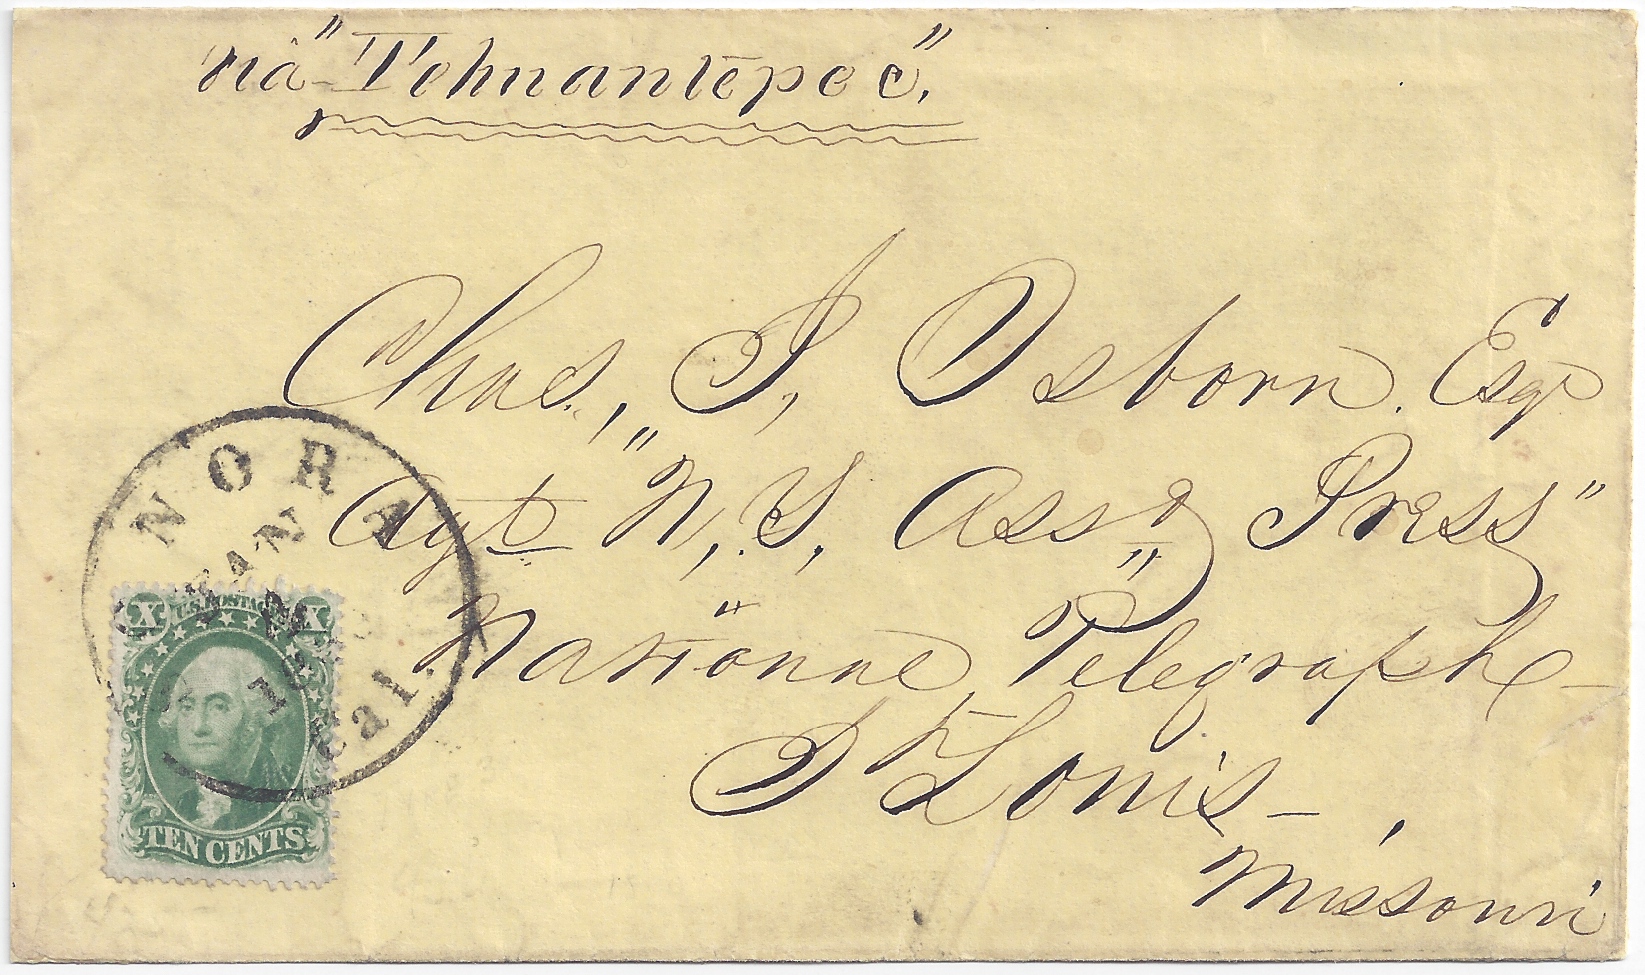 via "Tehuantepec",
Chas, J, Osborn. Esqr
Agt "N, Y, Assd Press"
"National Telegraph-
St Louis-,
Missouri
NORA
JAN
Cal.
X U.S. POSTAGE X
TEN CENTS